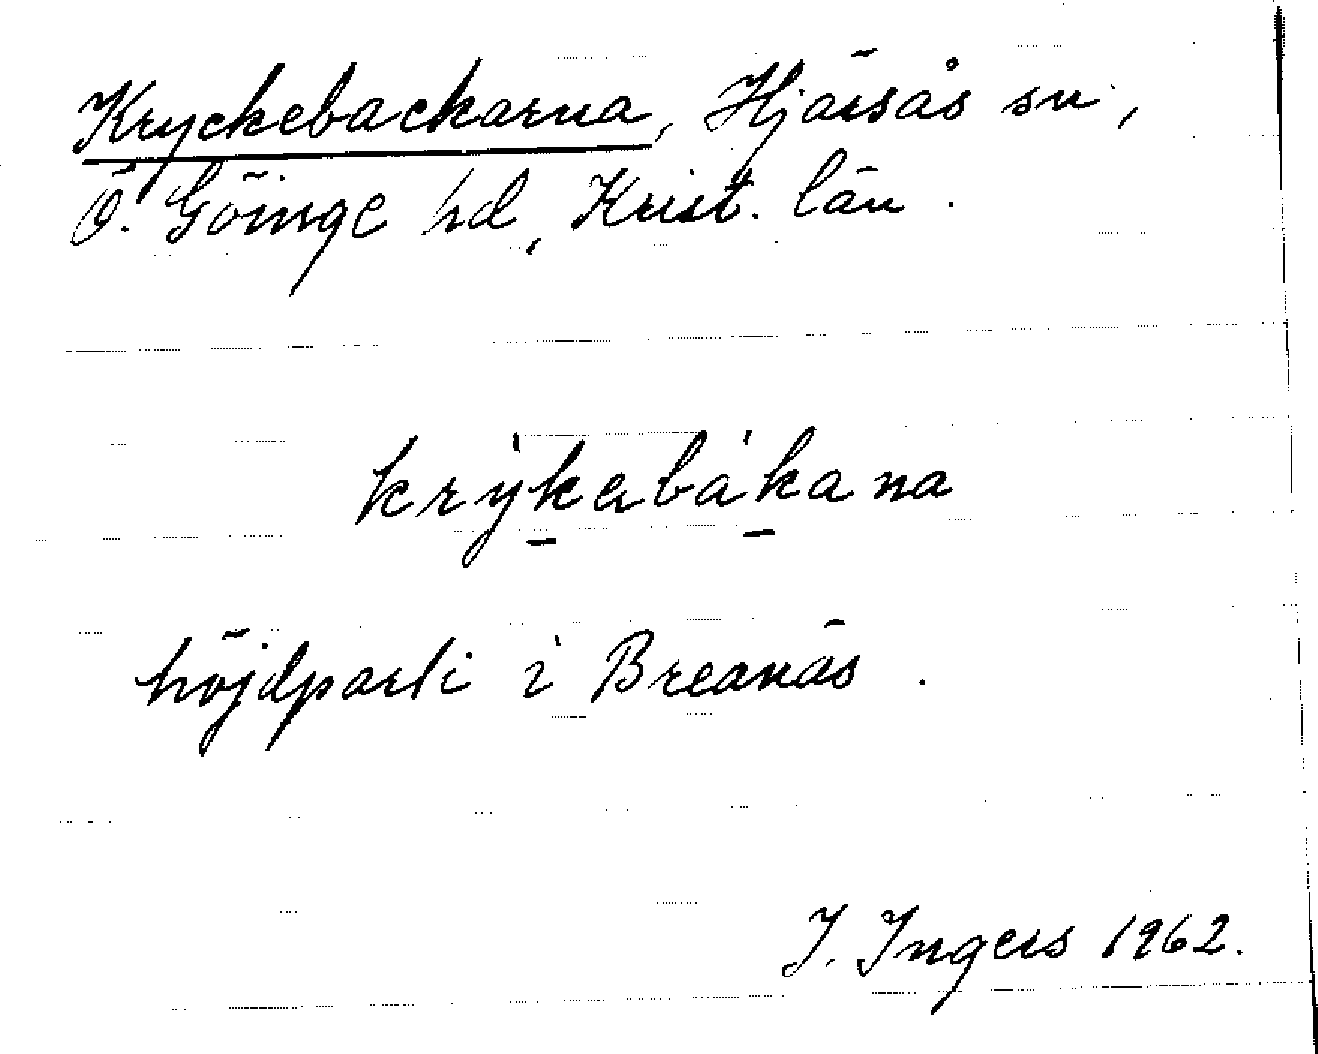 Kryckebackarna, Hjärsås sn.,
Ö. Göinge hd, Krist. län.
krýkabákana
höjdparti i Breanäs.
I. Ingers 1962.